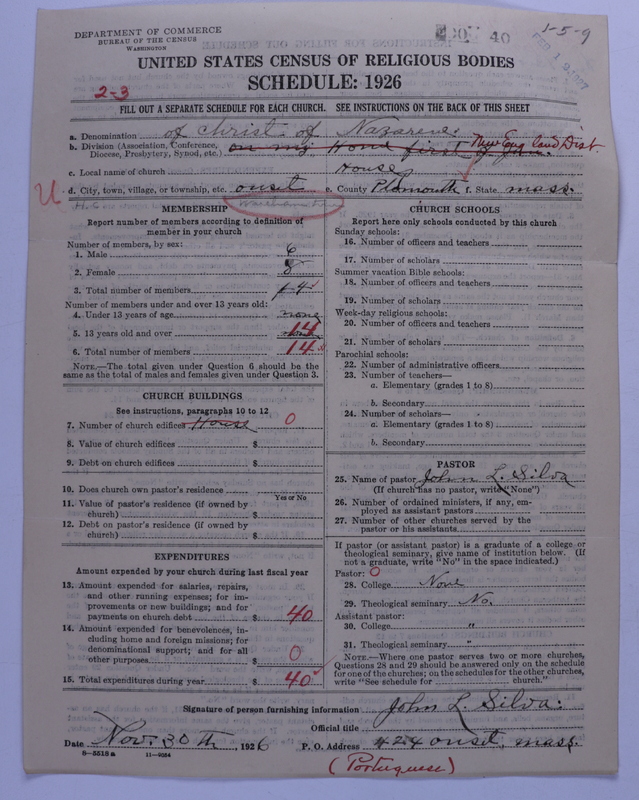 DEPARTMENT OF COMMERCE
BUREAU OF THE CENSUS
WASHINGTON
40
1-5-9
UNITED STATES CENSUS OF RELIGIOUS BODIES
SCHEDULE: 1926
2-3
FILL OUT A SEPARATE SCHEDULE FOR EACH CHURCH. SEE INSTRUCTIONS ON THE BACK OF THIS SHEET
a. Denomination of Christ of Nazarene.
b. Division (Association, Conference, Diocese, Presbytery, Synod, etc.) on my Home first New England Dist.
c. Local name of church House
U
d. City, town, village, or township, etc. onset e. County Plymouth f. State mass.
MEMBERSHIP
Report number of members according to definition of
member in your church
Number of members, by sex:
1. Male 6
2. Female 8
3. Total number of members 14
Number of members under and over 13 years old:
4. Under 13 years of age none
5. 13 years old and over 14
6. Total number of members 14
NOTE.—The total given under Question 6 should be
same as the total of males and females given under Question 3.
CHURCH BUILDINGS
See instructions, paragraphs 10 to 12
7. Number of church edifices House 0
8. Value of church edifices $
9. Debt on church edifices $
10. Does church own pastor's residence
Yes or No
11. Value of pastor's residence (if owned by
church) $
12. Debt on pastor's residence (if owned by
church) $
EXPENDITURES
Amount expended by your church during last fiscal year
13. Amount expended for salaries, repairs,
and other running expenses; for im-
provements or new buildings; and for
payments on church debt $ 40
14. Amount expended for benevolences, in-
cluding home and foreign missions; for
denominational support; and for all
other purposes $ 0
15. Total expenditures during year $ 40
CHURCH SCHOOLS
Report here only schools conducted by this church
Sunday schools:
16. Number of officers and teachers
17. Number of scholars
Summer vacation Bible schools:
18. Number of officers and teachers
19. Number of scholars
Week-day religious schools:
20. Number of officers and teachers
21. Number of scholars
Parochial schools:
22. Number of administrative officers
23. Number of teachers—
a. Elementary (grades 1 to 8)
b. Secondary
24. Number of scholars—
a. Elementary (grades 1 to 8)
b. Secondary
PASTOR
25. Name of pastor John L. Silva
(If church has no pastor, write "None")
26. Number of ordained ministers, if any, em-
ployed as assistant pastors
27. Number of other churches served by the
pastor or his assistants
If pastor (or assistant pastor) is a graduate of a college or
theological seminary, give name of institution below. (If
not a graduate, write "No" in the space indicated.)
Pastor: 0
28. College None
29. Theological seminary No.
Assistant pastor:
30. College "
31. Theological seminary "
NOTE.—Where one pastor serves two or more churches,
Questions 28 and 29 should be answered only on the schedule
for one of the churches; on the schedules for the other churches,
write "See schedule for church."
Signature of person furnishing information John L. Silva.
Official title
Date Nov. 30 th, 1926 P. O. Address 424 onset, mass.
8—5518 a 11—9054
(Portuguese)